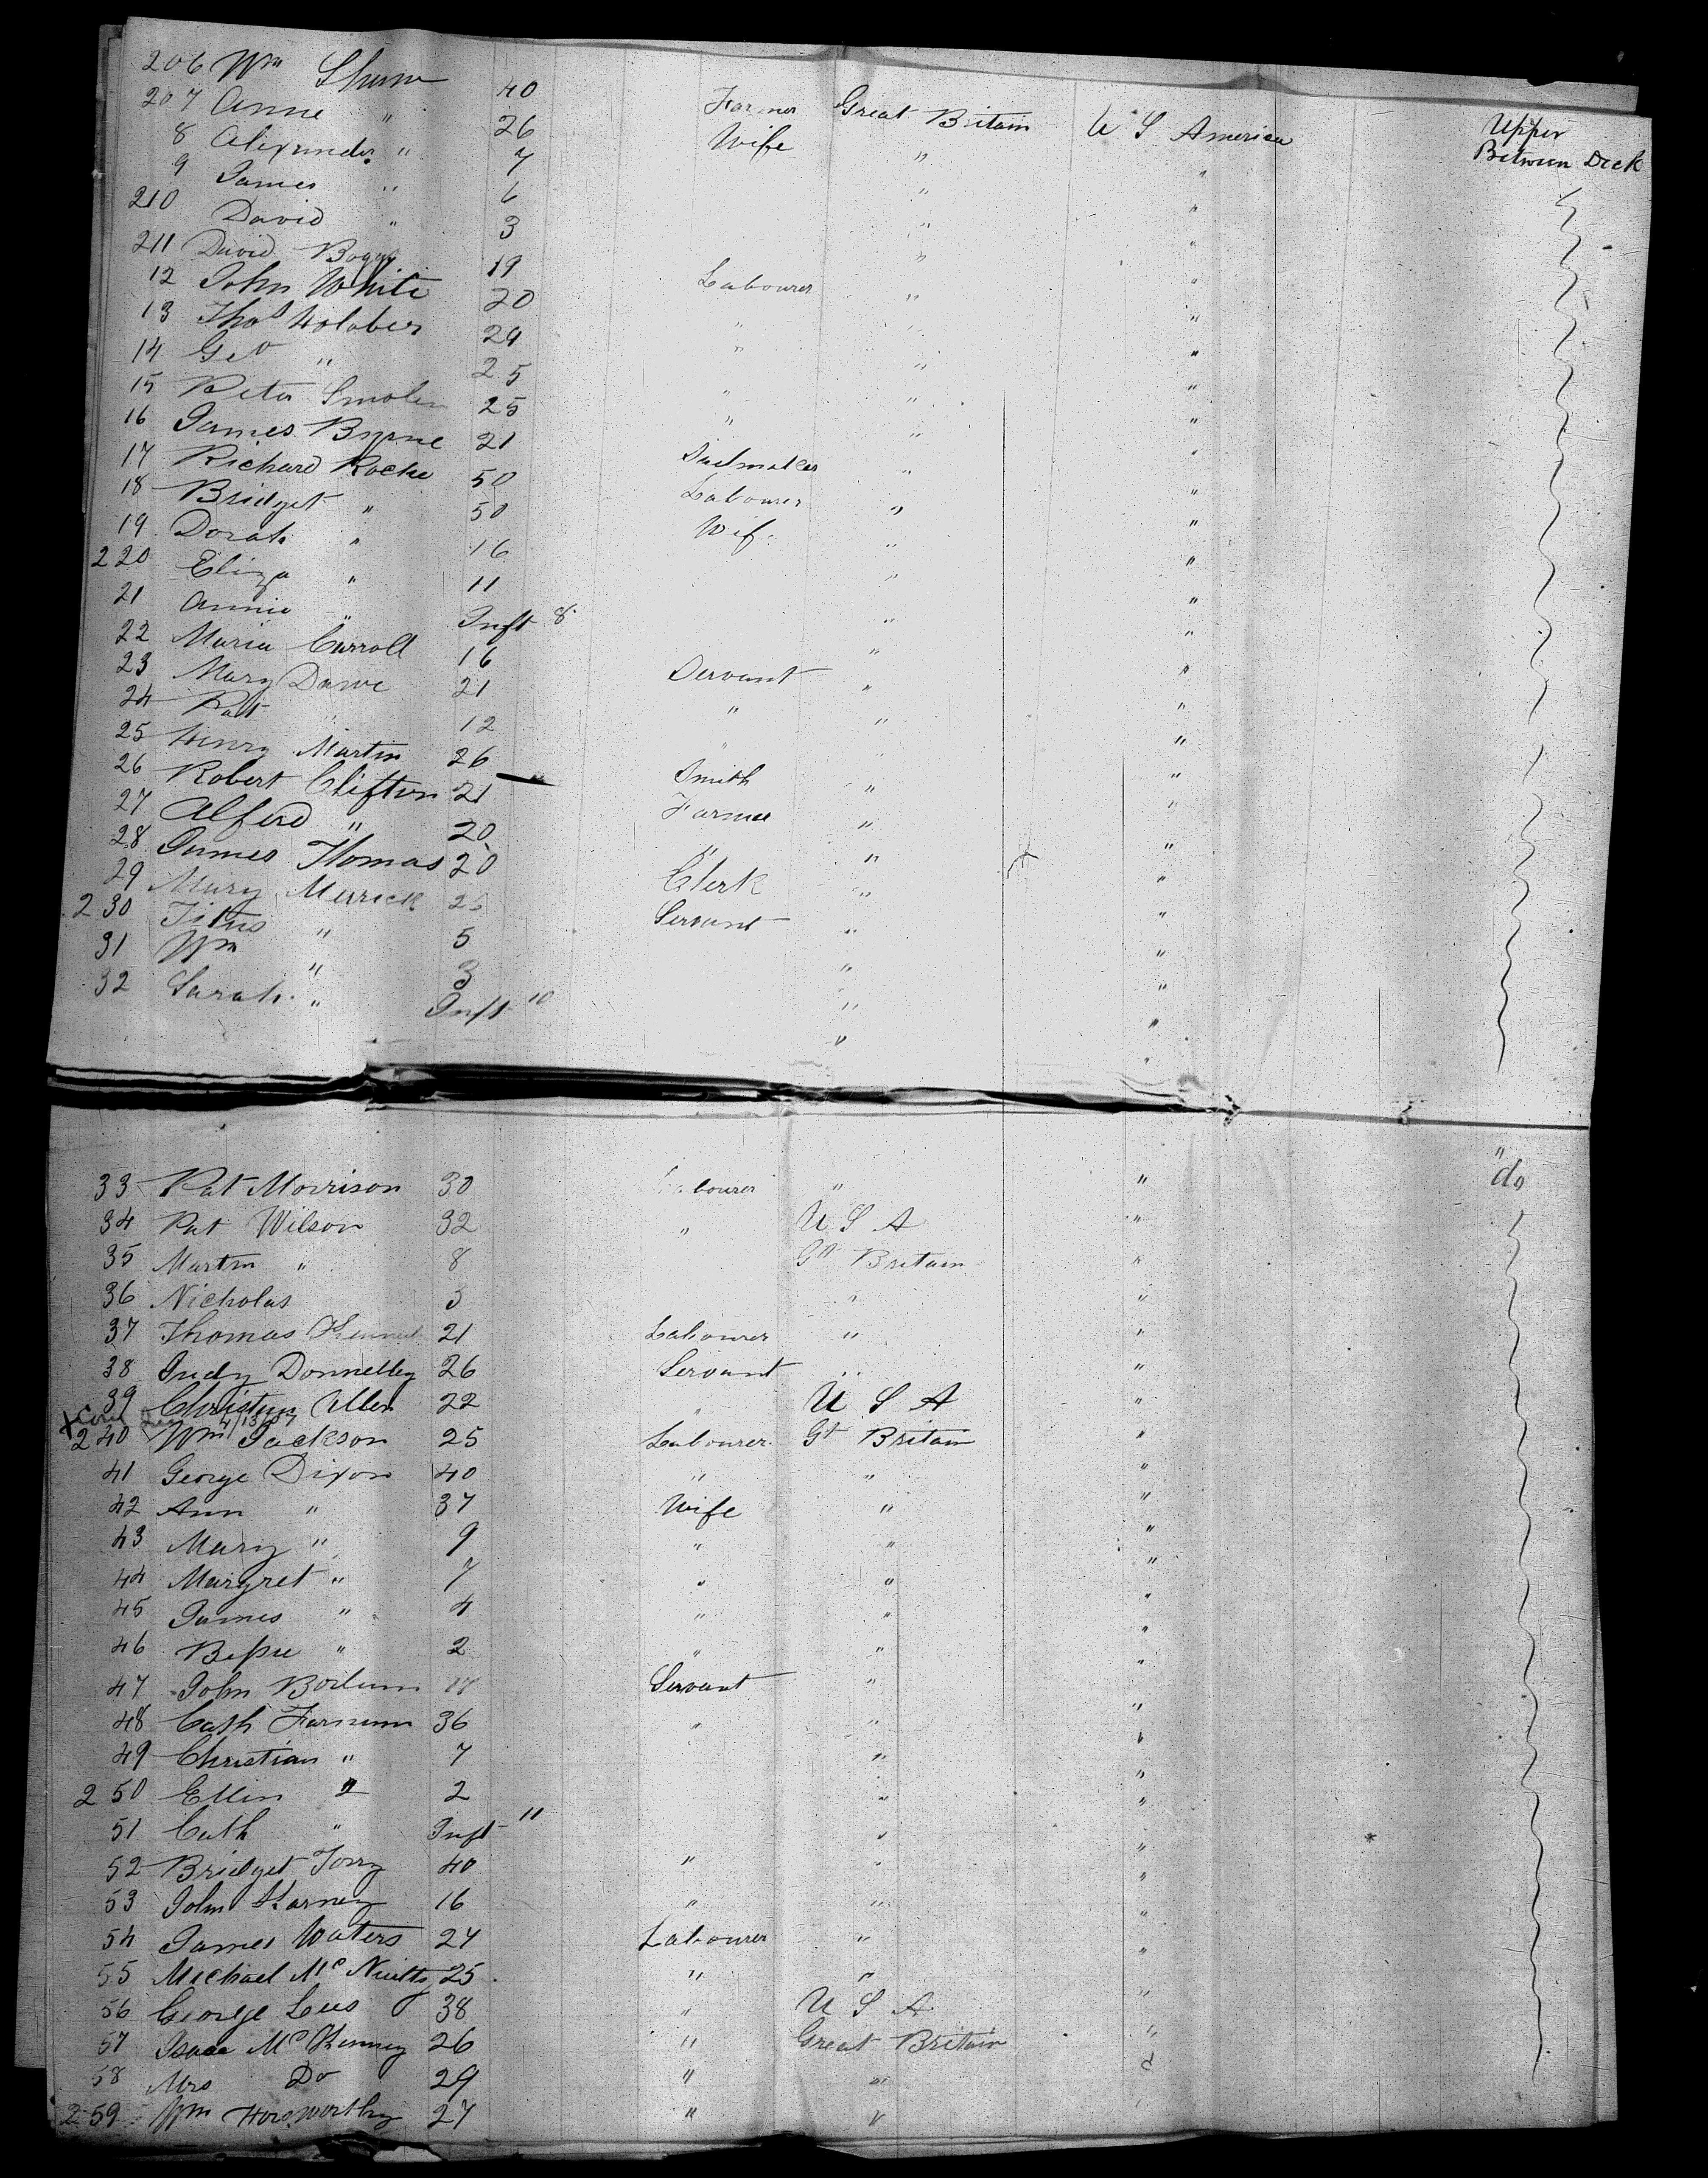 206 Wm Shaw 40 Farmer Great Britain U S America Upper Between Deck
207 Anne " 26 Wife " "
8 Alexander " 7 " "
9 James " 6 " "
210 David " 3 " "
211 David Boggs 19 Labourer " "
12 John White 20 " " "
13 Thos 29 " " "
14 Geo " 25 " " "
15 Peter Smolen 25 " " "
16 James Byrne 21 Sailmaker " "
17 Richard Roche 50 Labourer " "
18 Bridget " 50 Wife " "
19 Dorah " 16 " "
220 Eliza " 11 " "
21 Annie " Inft 8 " "
22 Maria Carroll 16 Servant " "
23 Mary Dawe 21 " " "
24 Pat " 12 " " "
25 Henry Martin 26 Smith " "
26 Robert Clifton 21 Farmer " "
27 Alferd " 20 " " "
28 James Thomas 20 Clerk " "
29 Mary Merrick 25 Servant " "
230 Titus " 5 " "
31 Wm " 3 " "
32 Sarah " Inft 10 " "
33 Pat Morrison 30 Labourer " " " do
34 Pat Wilson 32 " U S A "
35 Martin " 8 Gt Britain "
36 Nicholas 3 " "
37 Thomas 21 Labourer " "
38 Judy Donnelley 26 Servant " "
39 Christyn Ullen 22 " U S A "
X 4/13/57
240 Wm Jackson 25 Labourer Gt Britain "
41 George Dixon 40 " " "
42 Ann " 37 Wife " "
43 Mary " 9 " " "
44 Margret " 7 " " "
45 James " 4 " " "
46 Bessie " 2 " " "
47 John 17 Servant " "
48 Cath Farnum 36 " " "
49 Christian " 7 " "
250 Ellin " 2 " "
51 Cath " Inft 11 " "
52 Bridget Torry 40 " " "
53 John Karney 16 " " "
54 James Waters 24 Labourer " "
55 Michael Mc Nulty 25 " " "
56 George Lees 38 " U S A "
57 Isaac Mc Kenney 26 " Great Britain "
58 Mrs Do 29 " " "
259 Wm Horsworthy 27 " " "